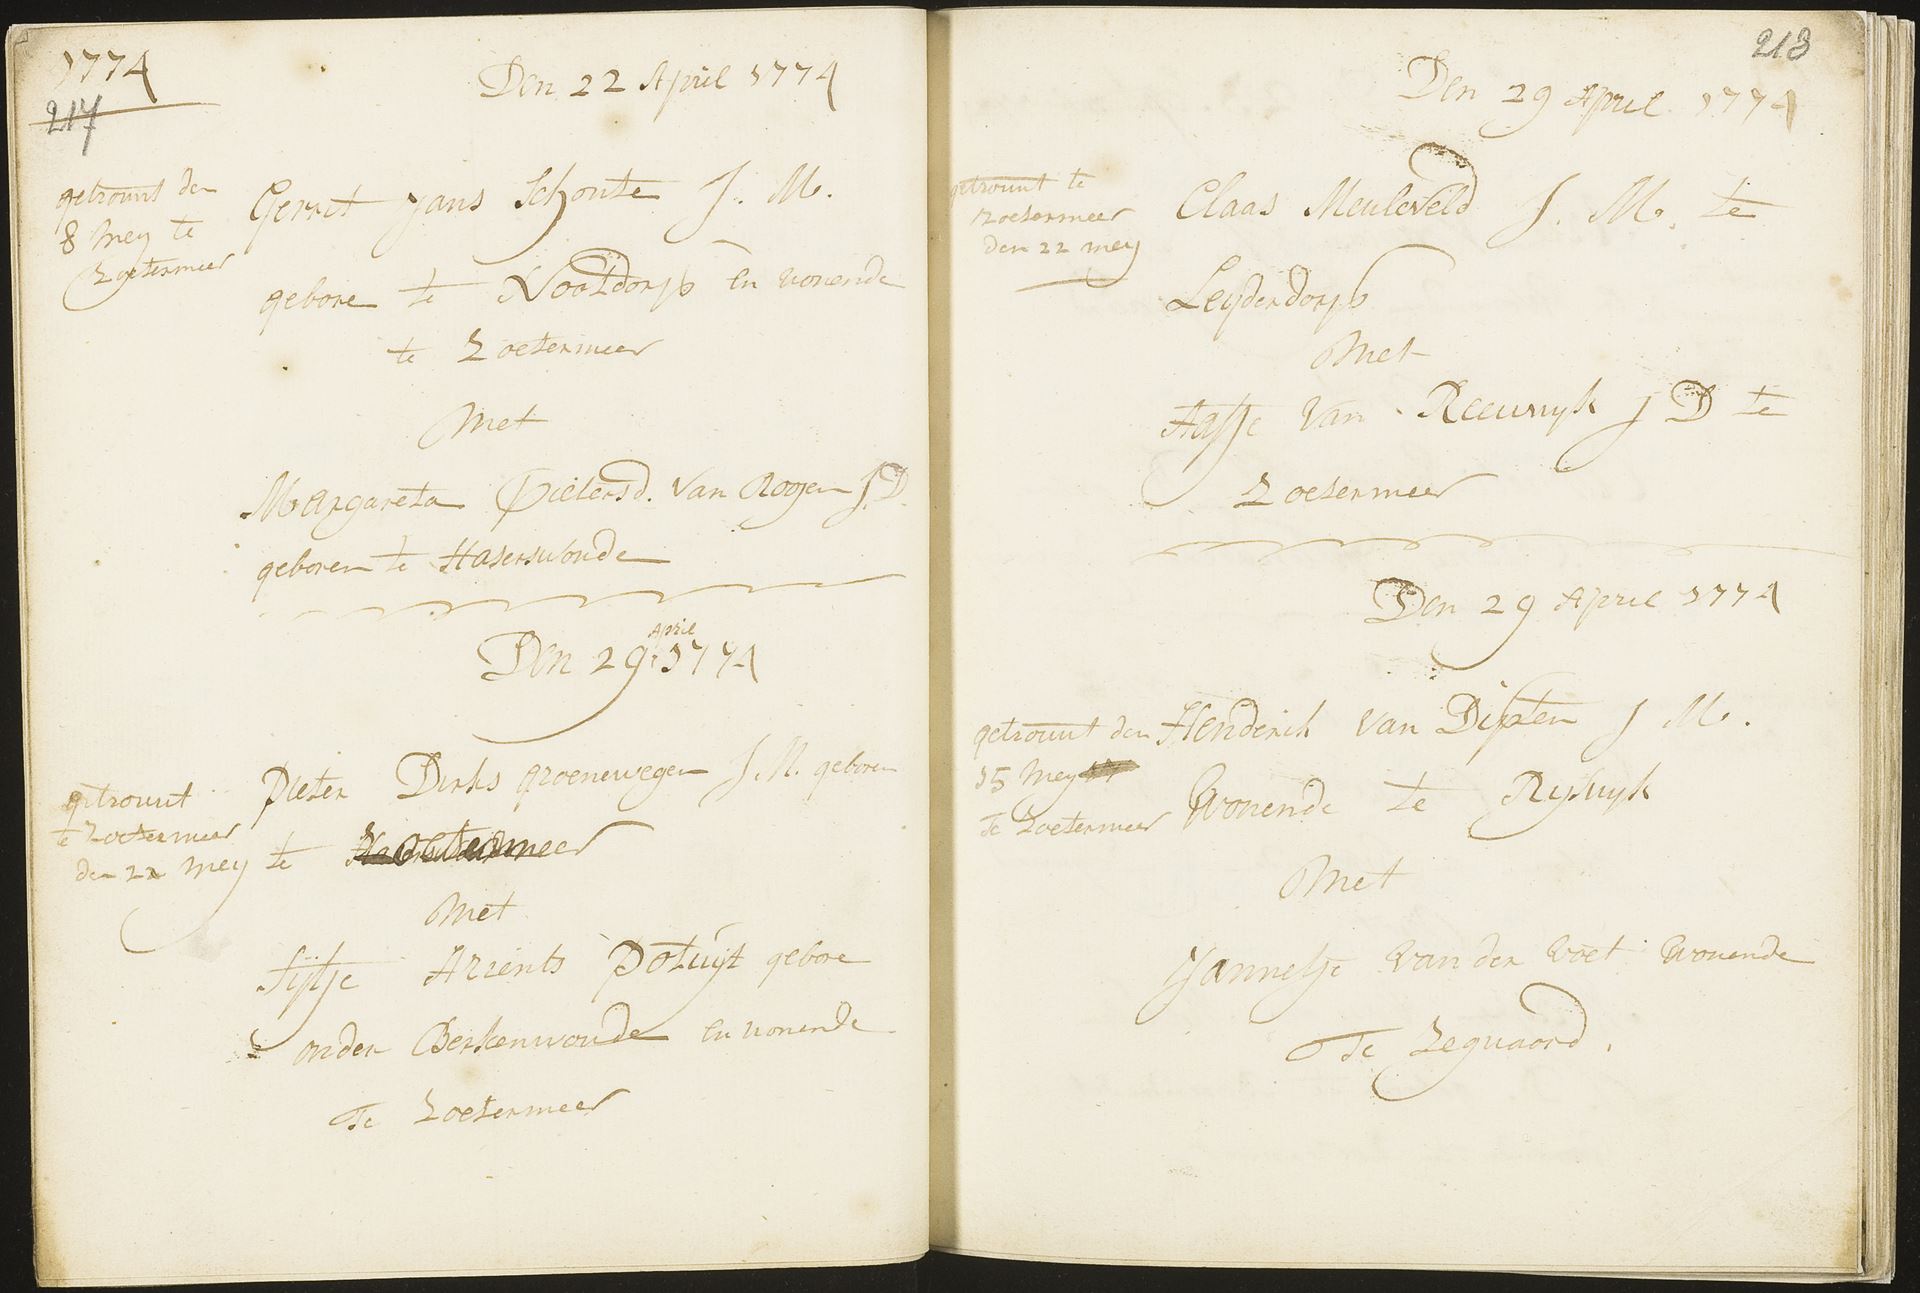 1774
217
Den 22 April 1774
getrouwt den
8 Mey te
Zoetermeer
Gerrit Jans Schonte J. M.
gebore te Nootdorp en wonende
te Zoetermeer
Met
Margareta Pietersd. Van Rooyen J. D.
geboren te Haserswoude
Den 29 April 1774
getrouwt
te Zoetermeer
den 22 Mey
Pieter Dirks Groenewegen J. M. geboren
te Zoetermeer
Met
Sijtje Ariens Potuyt gebore
onder Berkenwoude en wonende
Te Zoetermeer
218
Den 29 April 1774
getrouwt te
Zoetermeer
den 22 Mey
Claas Meuleveld J. M. te
Leyderdorp
Met
Aaftje Van Reeuwyk J D te
Zoetermeer
Den 29 April 1774
getrouwt den
15 Mey
Te Zoetermeer
Henderik Van Dipten J M.
Wonende te Ryswyk
Met
Jannetje Van der Voet Wonende
Te Zegwaard.